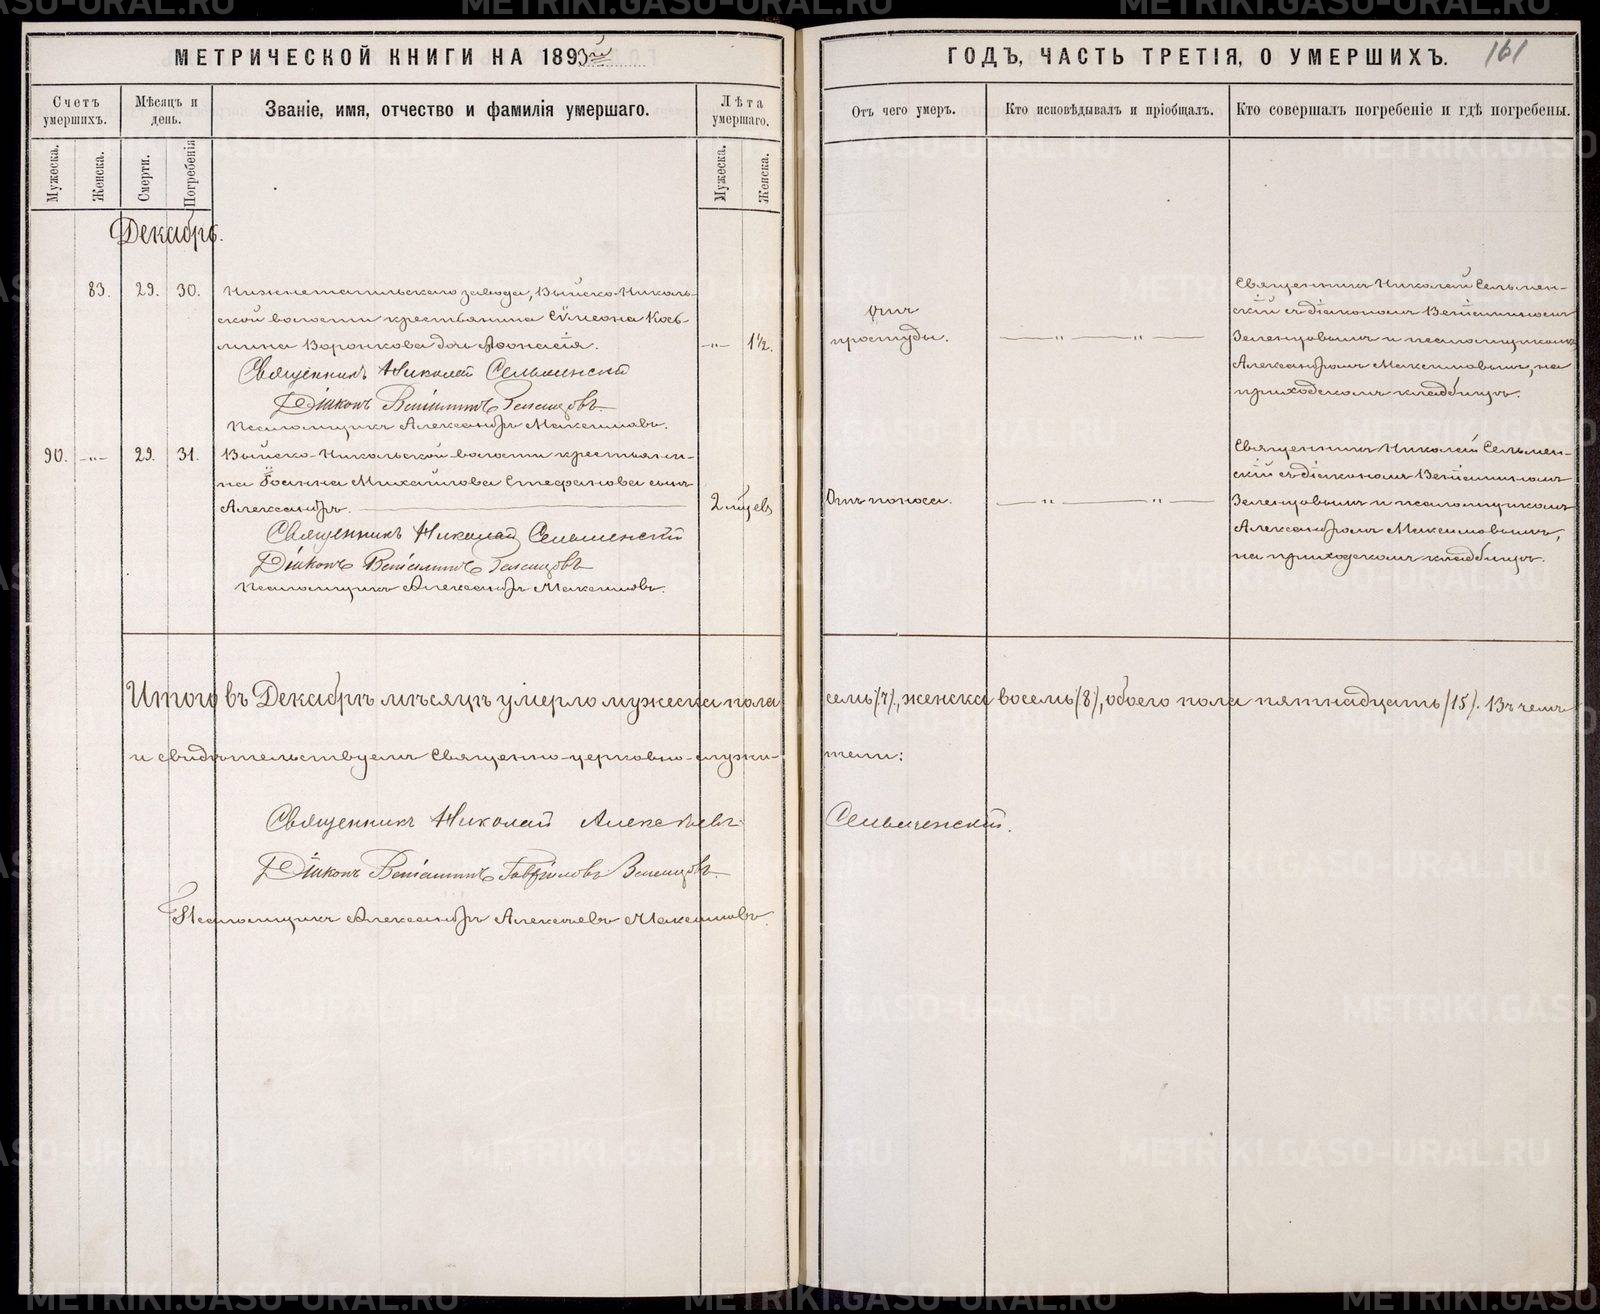 МЕТРИЧЕСКОЙ КНИГИ НА 1893й
ГОДЪ, ЧАСТЬ ТРЕТІЯ, О УМЕРШИХЪ.
161
Счетъ умершихъ.
Мѣсяцъ и день.
Званіе, имя, отчество и фамилія умершаго.
Лѣта умершаго.
Отъ чего умеръ.
Кто исповѣдывалъ и пріобщалъ.
Кто совершалъ погребеніе и гдѣ погребены.
Мужеска.
Женска.
Смерти.
Погребенія
Мужеска.
Женска.
Декабрь.
83. 29. 30.
Нижнетагильскаго завода, Выйско-Николь-
ской волости крестьянина Сѵмеона Козь-
мина Воронкова дочь Аѳонасія.
-„- 1½.
Священникъ Николай Сельменскій
Діаконъ Веніаминъ Зеленцовъ
Псаломщикъ Александръ Максимовъ.
Отъ
простуды.
— „ — „ —
Священникъ Николай Сельмен-
скій съ діакономъ Веніаминомъ
Зеленцовымъ и псаломщикомъ
Александромъ Максимовымъ, на
приходскомъ кладбищѣ.
90. -„- 29. 31.
Выйско-Никольской волости крестьяни-
на Іоанна Михайлова Стефанова сынъ
Александръ.
2 мѣсев
Священникъ Николай Сельменскій
Діаконъ Веніаминъ Зеленцовъ
Псаломщикъ Александръ Максимовъ.
Отъ поноса.
— „ — „ —
Священникъ Николай Сельмен-
скій съ діакономъ Веніаминомъ
Зеленцовымъ и псаломщикомъ
Александромъ Максимовымъ,
на приходскомъ кладбищѣ.
Итого въ Декабрѣ мѣсяцѣ умерло мужеска пола семь (7), женска восемь (8), обоего пола пятнадцать (15). Въ чемъ
и свидѣтельствуемъ Священно-церковно-служи- тели:
Священникъ Николай Алексѣевъ Сельменскій.
Діаконъ Веніаминъ Гавріиловъ Зеленцовъ
Псаломщикъ Александръ Алексѣевъ Максимовъ.
METRIKI.GASO-URAL.RU